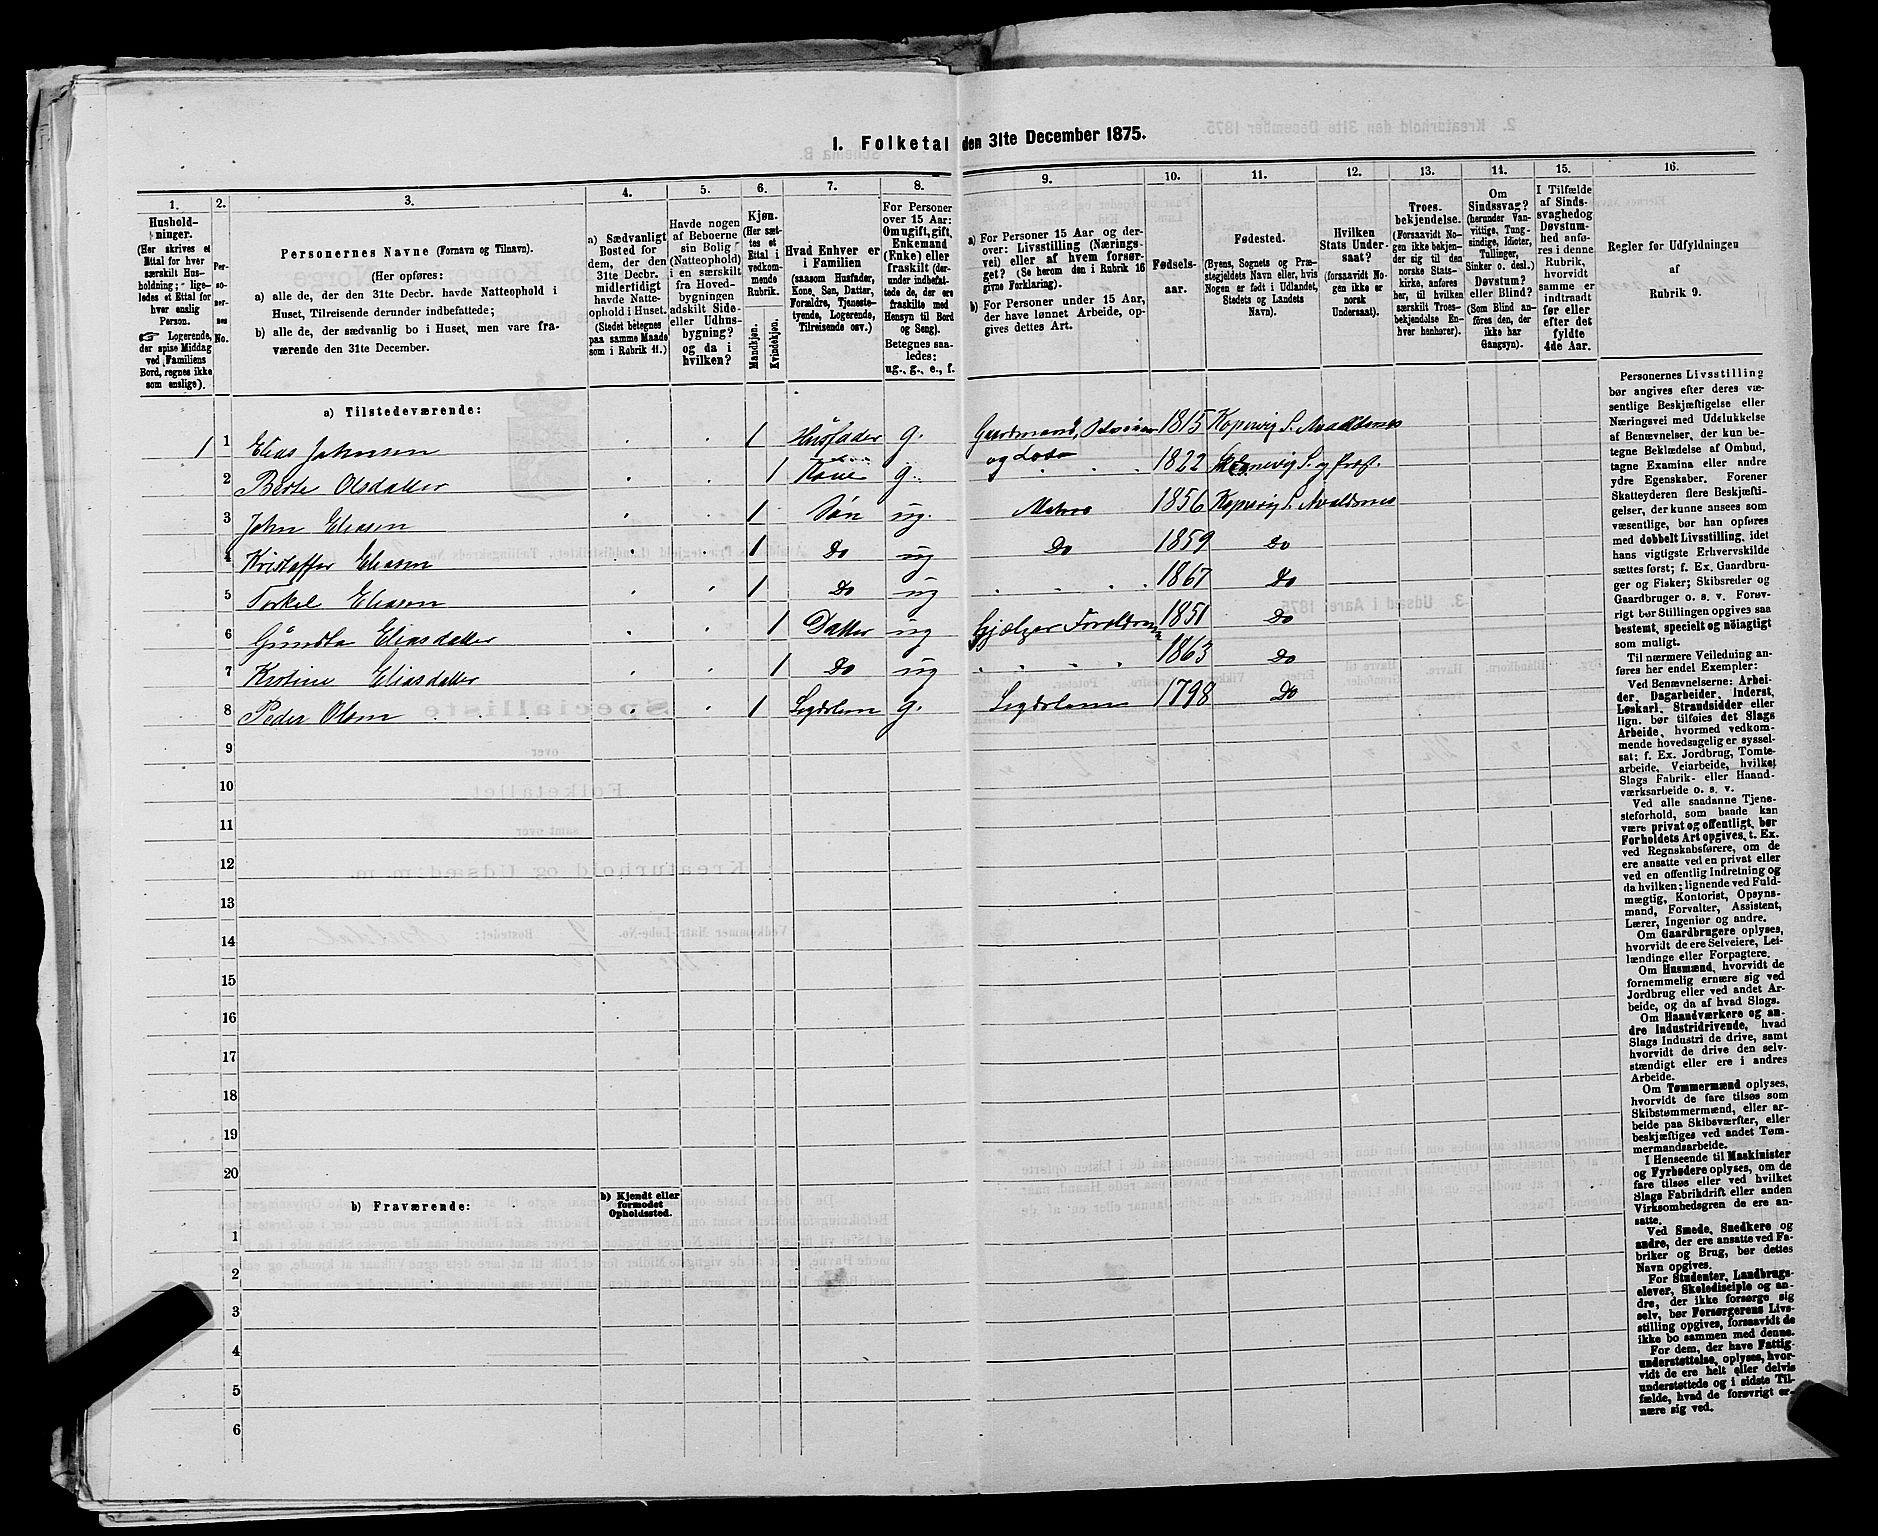 1. Folketal den 31te December 1875.
1. 2. 3. 4. 5. 6. 7. 8. 9. 10. 11. 12. 13. 14. 15. 16.
Hushold-
ninger.
(Her skrives et
Ettal for hver
særskilt Hus-
holdning; lige-
ledes et Ettal for
hver enslig
Person.
Logerende,
der spise Middag
ved Familiens
Bord, regnes ikke
som enslige).
Per-
so-
ner-
nes
No.
Personernes Navne (Fornavn og Tilnavn).
(Her opføres:
a) alle de, der den 31te Decbr. havde Natteophold i
Huset, Tilreisende derunder indbefattede;
b) alle de, der sædvanlig bo i Huset, men vare fra-
værende den 31te December.
a) Sædvanligt
Bosted for
dem, der den
31te Decbr.
midlertidigt
havde Natte-
ophold i Huset.
(Stedet betegnes
paa samme Maade
som i Rubrik 11.)
Havde nogen
af Beboerne
sin Bolig
(Natteophold)
i en særskilt
fra Hoved-
bygningen
adskilt Side-
eller Udhus-
bygning?
og da i
hvilken?
Kjøn.
(Her sæt-
tes et
Ettal i
vedkom-
mende
Rubrik.
Mandkjøn.
Kvindekjøn.
Hvad Enhver er
i Familien
(saasom Husfader,
Kone, Søn, Datter,
Forældre, Tjeneste-
tyende, Logerende,
Tilreisende osv.)
For Personer
over 15 Aar:
Om ugift, gift,
Enkemand
(Enke) eller
fraskilt (der-
under indbefat-
tede de, der ere
fraskilte med
Hensyn til Bord
og Seng).
Betegnes saa-
ledes:
ug., g., e., f.
a) For Personer 15 Aar og der-
over: Livsstilling (Nærings-
vei) eller af hvem forsør-
get? (Se herom den i Rubrik 16
givne Forklaring).
b) For Personer under 15 Aar,
der have lønnet Arbeide, op-
gives dettes Art.
Fødsels-
aar.
Fødested.
(Byens, Sognets og Præ-
stegjeldets Navn eller, hvis
Nogen er født i Udlandet,
Stedets og Landets
Navn).
Hvilken
Stats Under-
saat?
(forsaavidt No-
gen ikke er
norsk
Undersaat).
Troes-
bekjendelse.
(Forsaavidt No-
gen ikke bekjen-
der sig til den
norske Stats-
kirke, anføres
her, til hvilken
særskilt Troes-
bekjendelse En-
hver henhører).
Om
Sindssvag?
(herunder Van-
vittige, Tung-
sindige, Idioter,
Tullinger,
Sinker o. desl.)
Døvstum?
eller Blind?
(Som Blind an-
føres den, der
ikke har
Gangsyn).
I Tilfælde
af Sinds-
svaghed og
Døvstum-
hed anfø-
res i denne
Rubrik,
hvorvidt
samme er
indtraadt
før eller
efter det
fyldte
4de Aar.
Regler for Udfyldningen
af
Rubrik 9.
a) Tilstedeværende:
1 1 Elias Johnsen 1 Husfader g. Gaardmand, Selveier og Lods 1815 Kopervig S. Avaldsnes
2 Berte Olsdatter 1 Kone g. 1822 S. og Præf.
3 John Eliasen 1 Søn ug. Matros 1856 Kopervig S. Avaldsnes
4 Kristoffer Eliasen 1 Do ug Do 1859 Do
5 Torkel Eliasen 1 Do ug 1867 Do
6 Gundla Eliasdatter 1 Datter ug Hjælper Forældrene 1851 Do
7 Kristine Eliasdatter 1 Do ug 1863 Do
8 Peder Olsen 1 Lægdslem g. Lægdslem 1798 Do
9
10
11
12
13
14
15
16
17
18
19
20
b) Fraværende:
b) Kjendt eller
formodet
Opholdssted.
1
2
3
4
5
6
Personernes Livsstilling
bør angives efter deres væ-
sentlige Beskjæftigelse eller
Næringsvei med Udelukkelse
af Benævnelser, der kun be-
tegne Beklædelse af Ombud,
tagne Examina eller andre
ydre Egenskaber. Forener
Skatteyderen flere Beskjæfti-
gelser, der kunne ansees som
væsentlige, bør han opføres
med dobbelt Livsstilling, idet
hans vigtigste Erhvervskilde
sættes først; f. Ex. Gaardbru-
ger og Fisker; Skibsreder og
Gaardbruger o. s. v. Forøv-
rigt bør Stillingen opgives saa
bestemt, specielt og nøiagtigt
som muligt.
Til nærmere Veiledning an-
føres her endel Exempler:
Ved Benævnelserne: Arbei-
der, Dagarbeider, Inderst,
Løskarl, Strandsidder eller
lign. bør tilføies det Slags
Arbeide, hvormed vedkom-
mende hovedsagelig er syssel-
sat; f. Ex. Jordbrug, Tomte-
arbeide, Veiarbeide, hvilket
Slags Fabrik- eller Haand-
værksarbeide o. s. v.
Ved alle saadanne Tjene-
steforhold, som baade kan
være privat og offentligt, bør
Forholdets Art opgives, t. Ex.
ved Regnskabsførere, om de
ere ansatte ved en privat eller
ved en offentlig Indretning og
da hvilken; lignende ved Fuld-
mægtig, Kontorist, Opsyns-
mand, Forvalter, Assistent,
Lærer, Ingeniør og andre.
Om Gaardbrugere oplyses,
hvorvidt de ere Selveiere, Lei-
lændinge eller Forpagtere.
Om Husmænd, hvorvidt de
fornemmelig ernære sig ved
Jordbrug eller ved andet Ar-
beide, og da af hvad Slags.
Om Haandværkere og an-
dre Industridrivende, hvad
Slags Industri de drive, samt
hvorvidt de drive den selv-
stændigt eller ere i andres
Arbeide.
Om Tømmermænd oplyses,
hvorvidt de fare tilsøs som
Skibstømmermænd, eller ar-
beide paa Skibsværfter, eller
beskjæftiges ved andet Tøm-
mermandsarbeide.
I Henseende til Maskinister
og Fyrbødere oplyses, om de
fare tilsøs eller ved hvilket
Slags Fabrikdrift eller anden
Virksomhedsgren de ere an-
satte.
Ved Smede, Snedkere og
andre, der ere ansatte ved Fa-
briker og Brug, bør dettes
Navn opgives.
For Studenter, Landbrugs-
elever, Skoledisciple og an-
dre, der ikke forsørge sig
selv, bør Forsørgerens Livs-
stilling opgives, forsaavidt de
ikke bo sammen med denne.
For dem, der have Fattig-
understøttelse, oplyses, hvor-
vidt de ere helt eller delvis
understøttede og i sidste Til-
fælde, hvad de forøvrigt er-
nære sig ved.